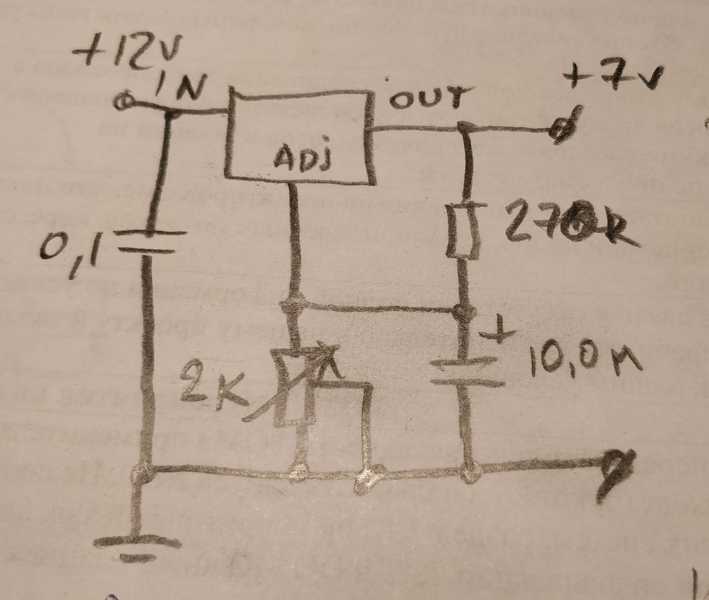 +12v
IN
OUT
+7v
ADj
0,1
270R
+
10,0м
2K